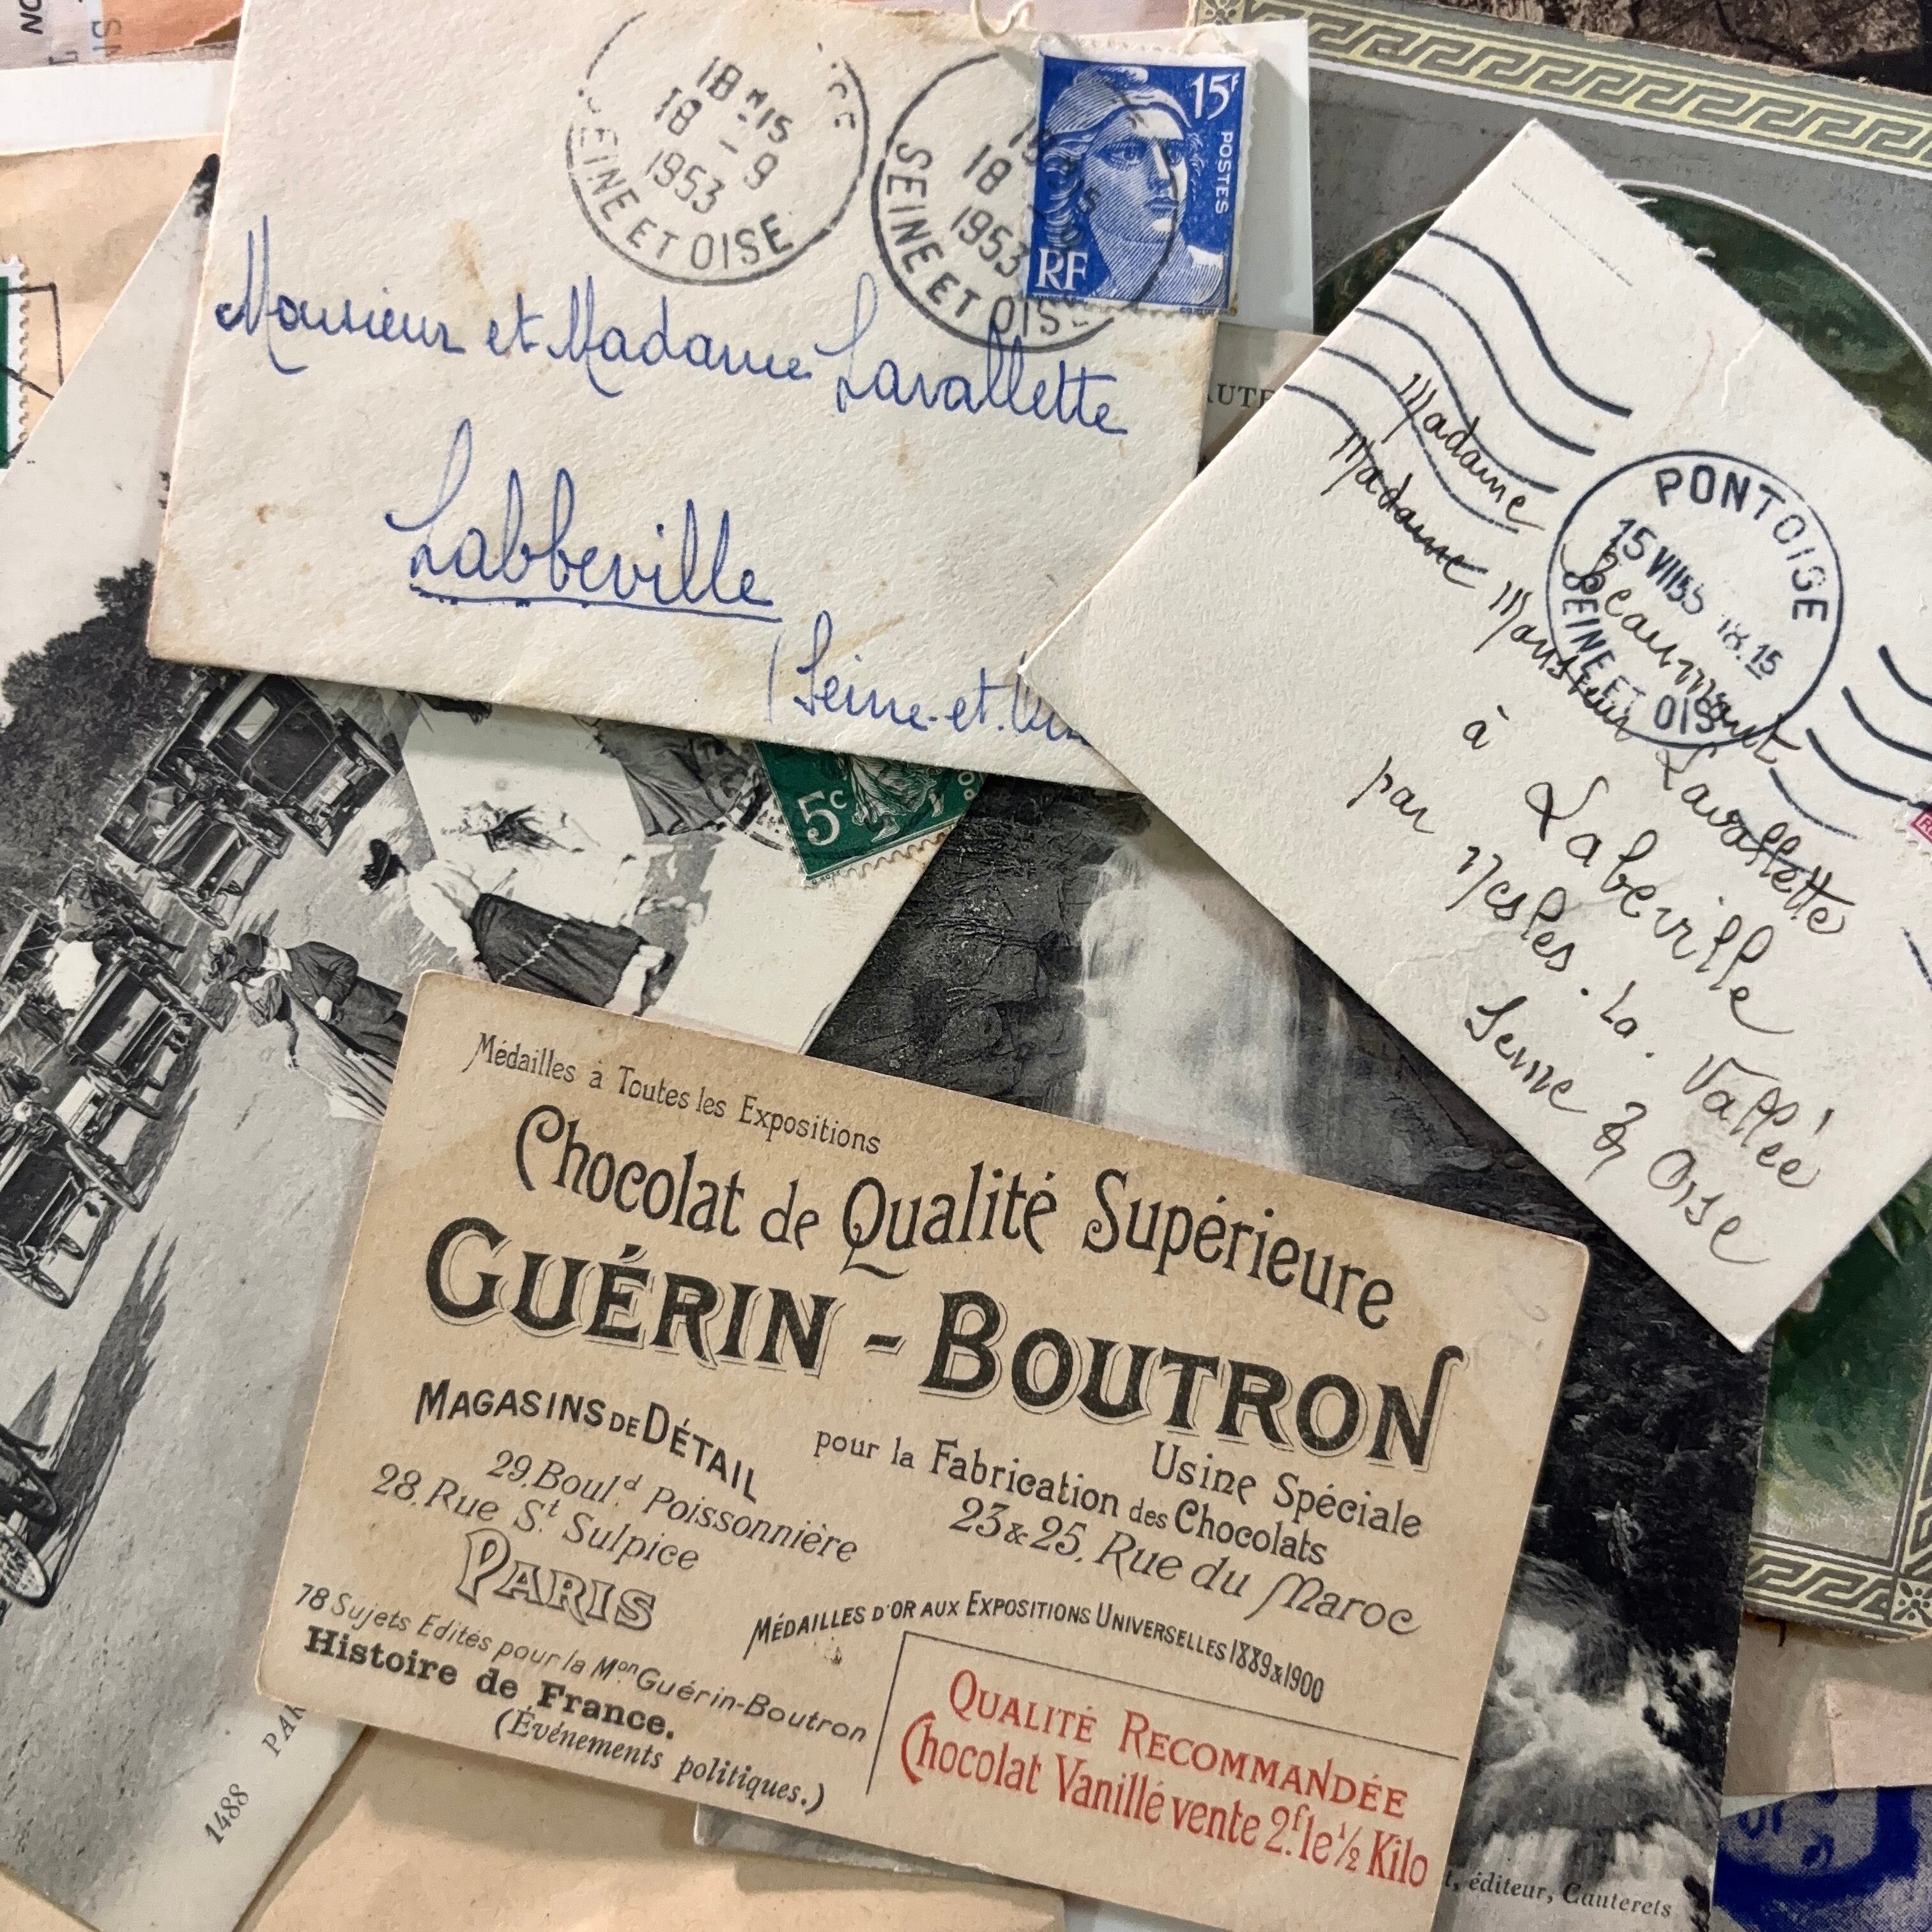 18 H 15
18 - 9
1953
SEINE ET OISE
18
1953
SEINE ET OISE
15F
POSTES
RF
Monsieur et Madame Lavallette
Labbeville
(Seine-et-
PONTOISE
18.15
SEINE ET OISE
Madame Beaumont
Madame Monsieur Lavallette
à Labeville
par Nesles. La. Vallée
Seine & Oise
5c
Médailles à Toutes les Expositions
Chocolat de Qualité Supérieure
GUÉRIN - BOUTRON
MAGASINS DE DÉTAIL
29. Boul.d Poissonnière
28. Rue St. Sulpice
PARIS
Usine Spéciale
pour la Fabrication des Chocolats
23 & 25. Rue du Maroc
MÉDAILLES D'OR AUX EXPOSITIONS UNIVERSELLES 1889 & 1900
78 Sujets Edités pour la Mon Guérin-Boutron
Histoire de France.
(Événements politiques.)
QUALITÉ RECOMMANDÉE
Chocolat Vanillé vente 2f. le ½ Kilo
1488
PAR
t, éditeur, Cauterets